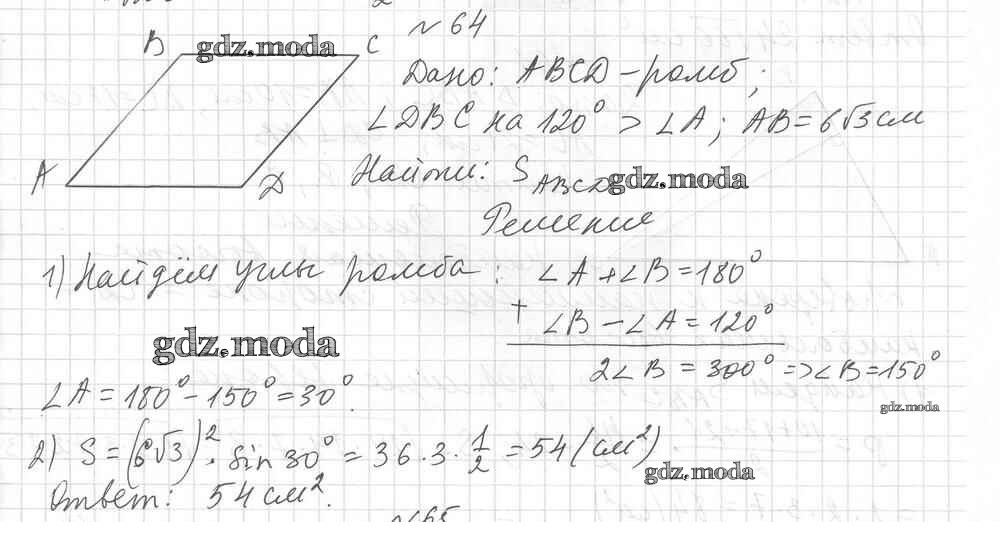 № 64
B gdz.moda C
Дано: ABCD – ромб;
∠DBC на 120° > ∠A; AB = 6√3 см
A D
Найти: S ABCD gdz.moda
Решение
1) Найдём углы ромба: ∠A + ∠B = 180°
+ ∠B − ∠A = 120°
gdz.moda
2∠B = 300° => ∠B = 150°
∠A = 180° − 150° = 30°.
gdz.moda
2) S = (6√3)² · sin 30° = 36 · 3 · 1/2 = 54 (см²)
gdz.moda
Ответ: 54 см².
№65